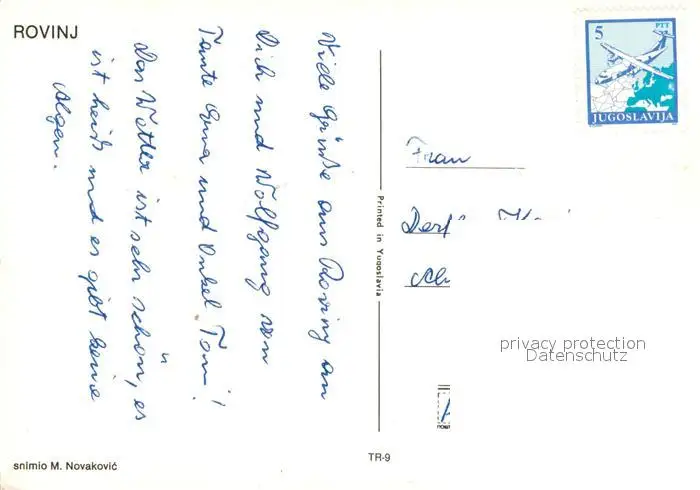 ROVINJ
Viele Grüße aus Rovinj an
Dich und Wolfgang von
Tante Erna und Onkel Toni!
Das Wetter ist sehr schön, es
ist heiß und es gibt keine
Algen.
snimio M. Novaković
Printed in Yugoslavia
TR-9
5
PTT
JUGOSLAVIJA
Frau
privacy protection
Datenschutz